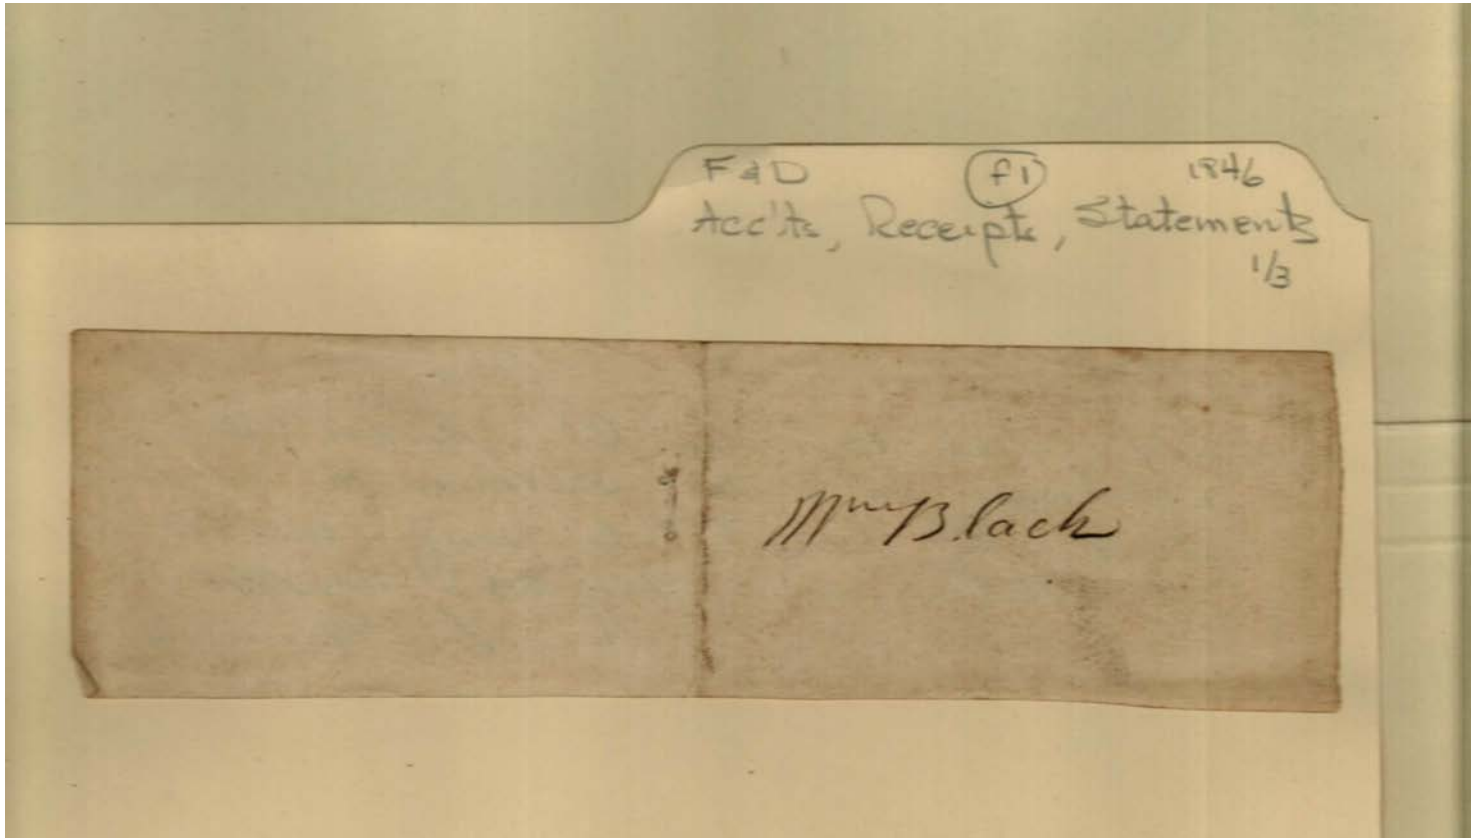 F & D f1 1846
Acc'ts, Receipts, Statements
1/3
Wm Black